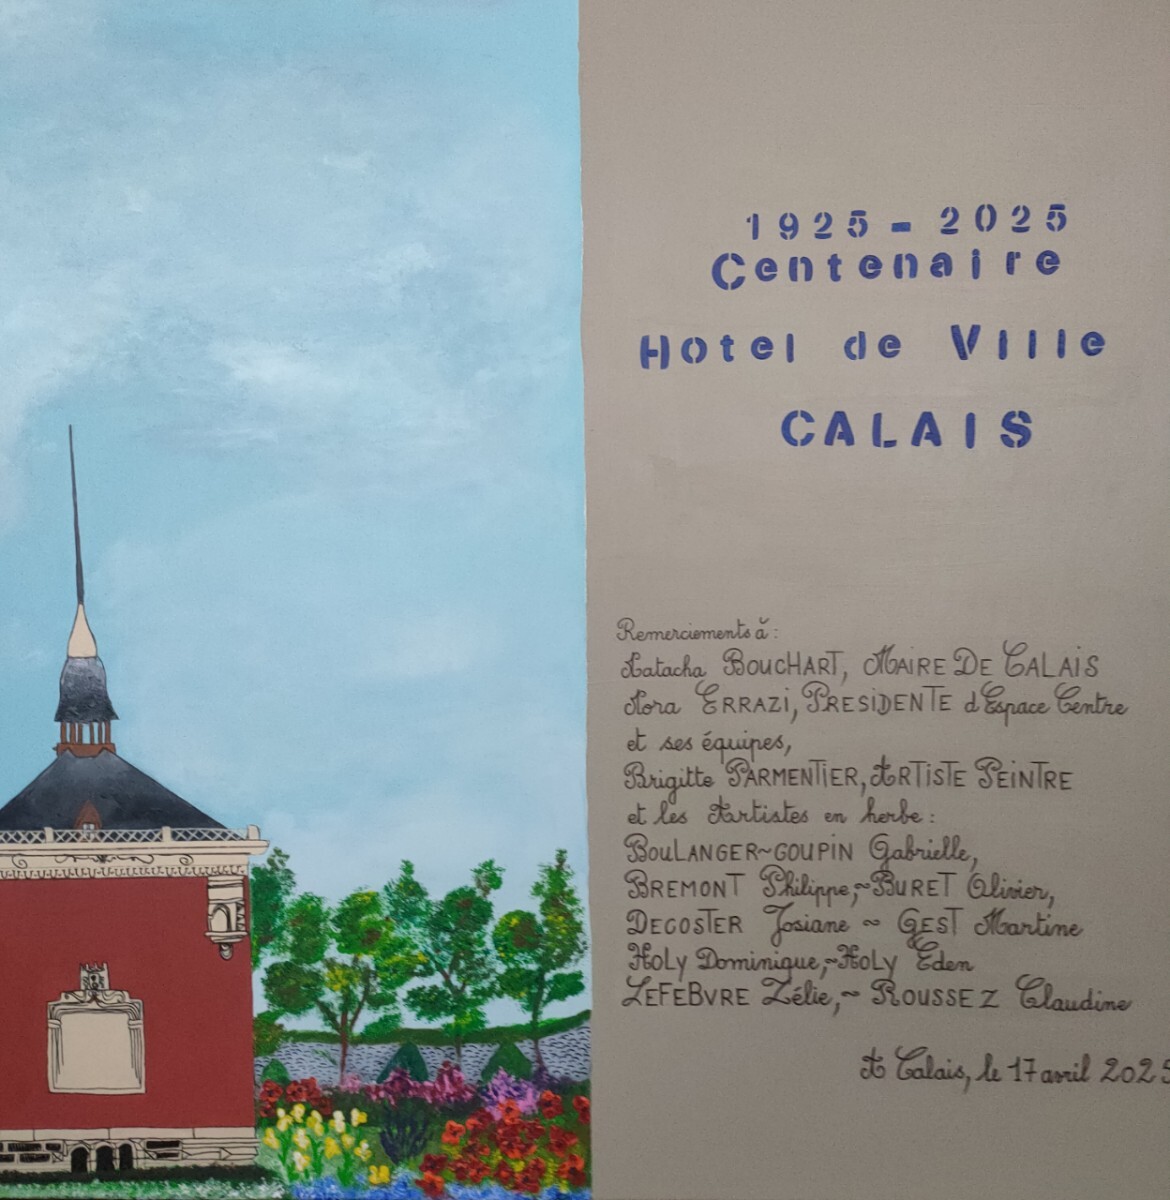 1925-2025
Centenaire
Hotel de Ville
CALAIS
Remerciements à :
Natacha BOUCHART, MAIRE DE CALAIS
Nora ERRAZI, PRESIDENTE d'Espace Centre
et ses équipes,
Brigitte PARMENTIER, ARTISTE PEINTRE
et les Artistes en herbe :
BOULANGER~GOUPIN Gabrielle,
BREMONT Philippe,~BURET Olivier,
DECOSTER Josiane ~ GEST Martine
HOLY Dominique,~HOLY Eden
LEFEBVRE Zélie,~ ROUSSEZ Claudine
A Calais, le 17 avril 2025